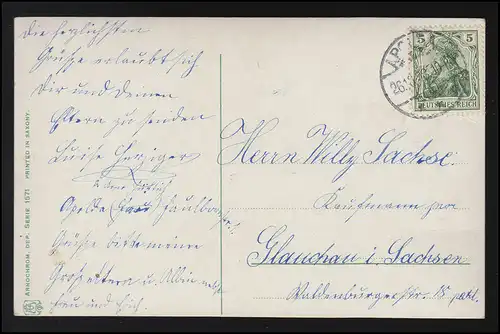 die herzlichsten
Grüsse erlaubt sich
Dir und Deinen
Eltern zu senden
Luise Herziger
Apolda
Grüsse bitte meine
Grosseltern u.
und Dich.
ARNOCHROM. DEP. SERIE 1571 PRINTED IN SAXONY.
5 5
DEUTSCHES REICH
26.
Herrn Willy Sachse
Kaufmann
Glauchau i. Sachsen
Waldenburgerstr. 18